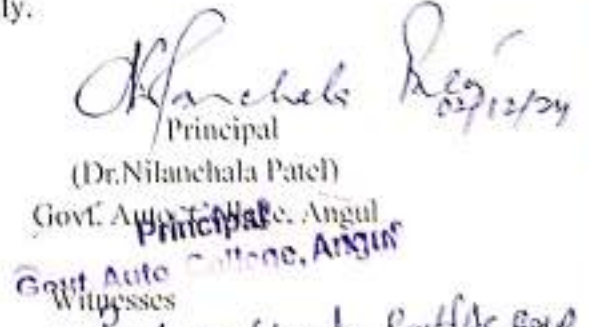 ly.
Nilanchala Patel
02/12/24
Principal
(Dr.Nilanchala Patel)
Govt. Auto. College, Angul
Principal
Govt. Auto College, Angul
Witnesses